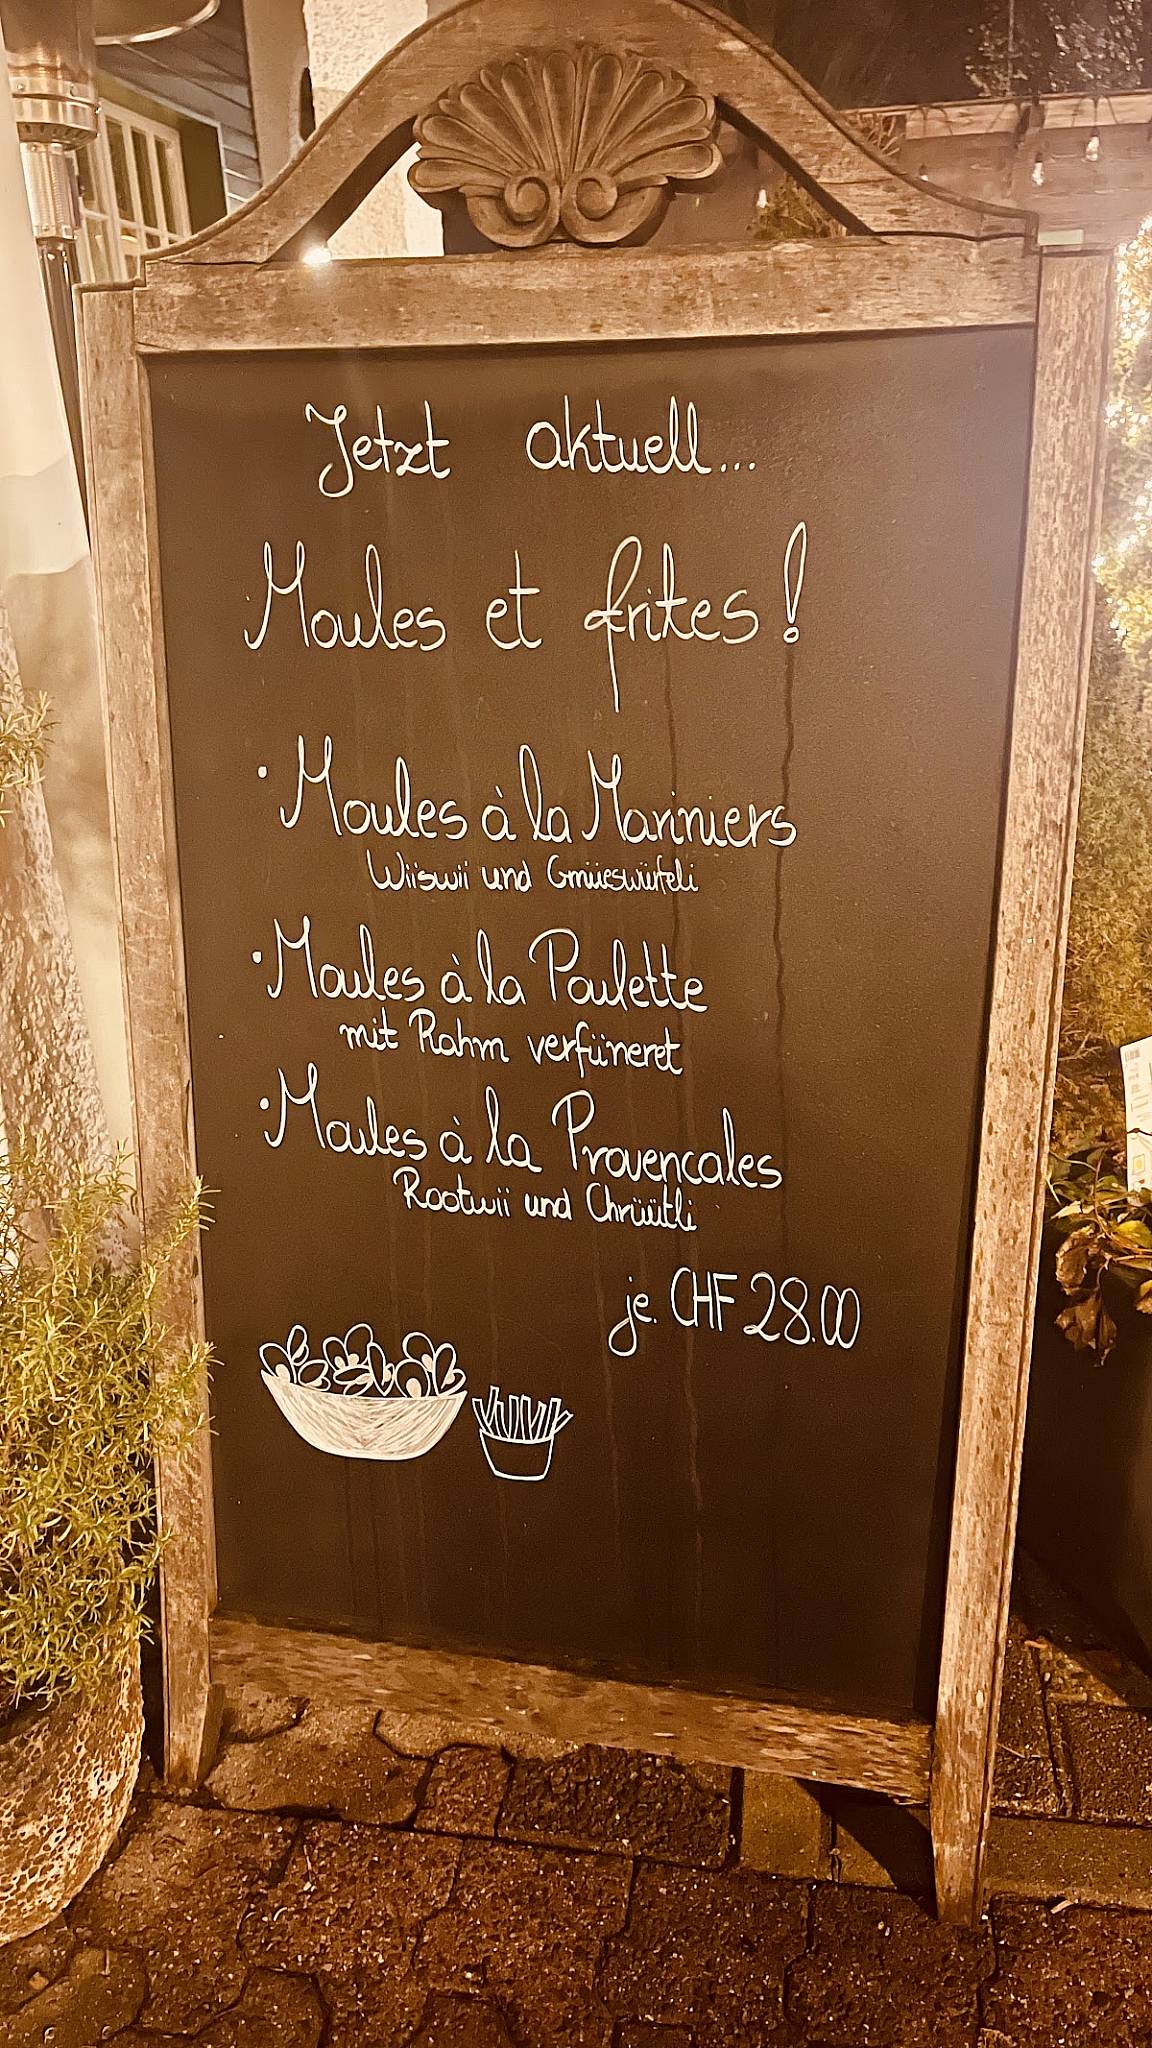 Jetzt aktuell...
Moules et frites!
· Moules à la Mariniers
Wiiswii und Gmüeswürfeli
· Moules à la Poulette
mit Rahm verfüneret
· Moules à la Provencales
Rootwii und Chrüütli
je. CHF 28.00